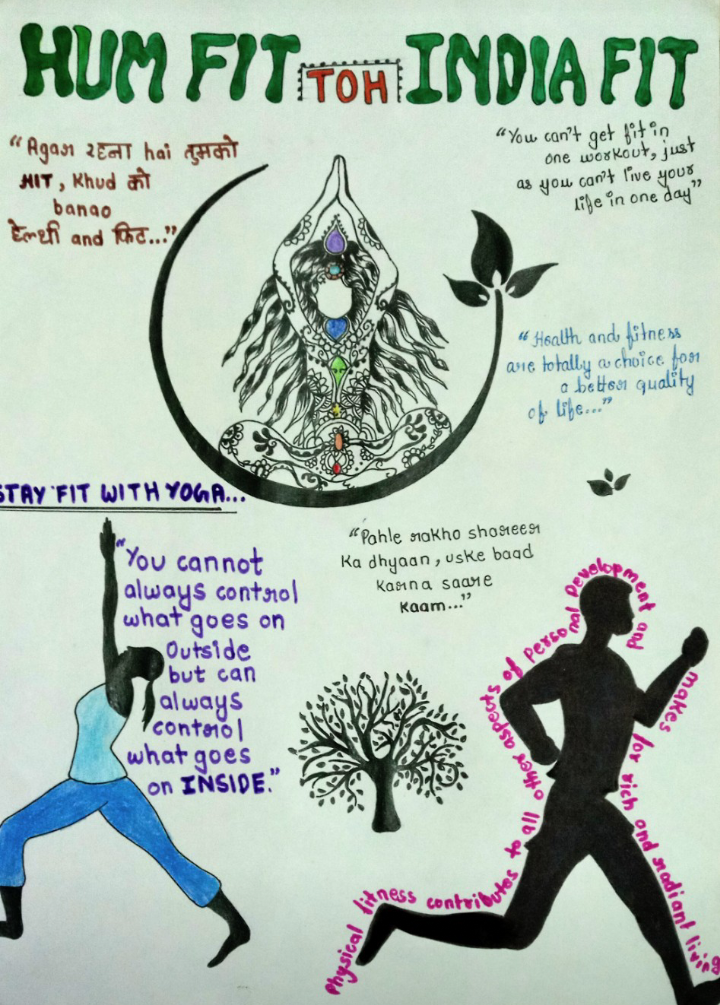 HUM FIT TOH INDIA FIT
"Agar रहना hai तुमको
HIT, Khud को
banao
हेल्थी and फिट..."
"You can't get fit in
one workout, just
as you can't live your
life in one day"
"Health and fitness
are totally a choice for
a better quality
of life..."
STAY FIT WITH YOGA...
"Pahle rakho shareer
Ka dhyaan, uske baad
Karna saare
Kaam..."
"You cannot
always control
what goes on
Outside
but can
always
control
what goes
on INSIDE."
Physical fitness contributes to all other aspects of Personal Development and
makes for rich and radiant living